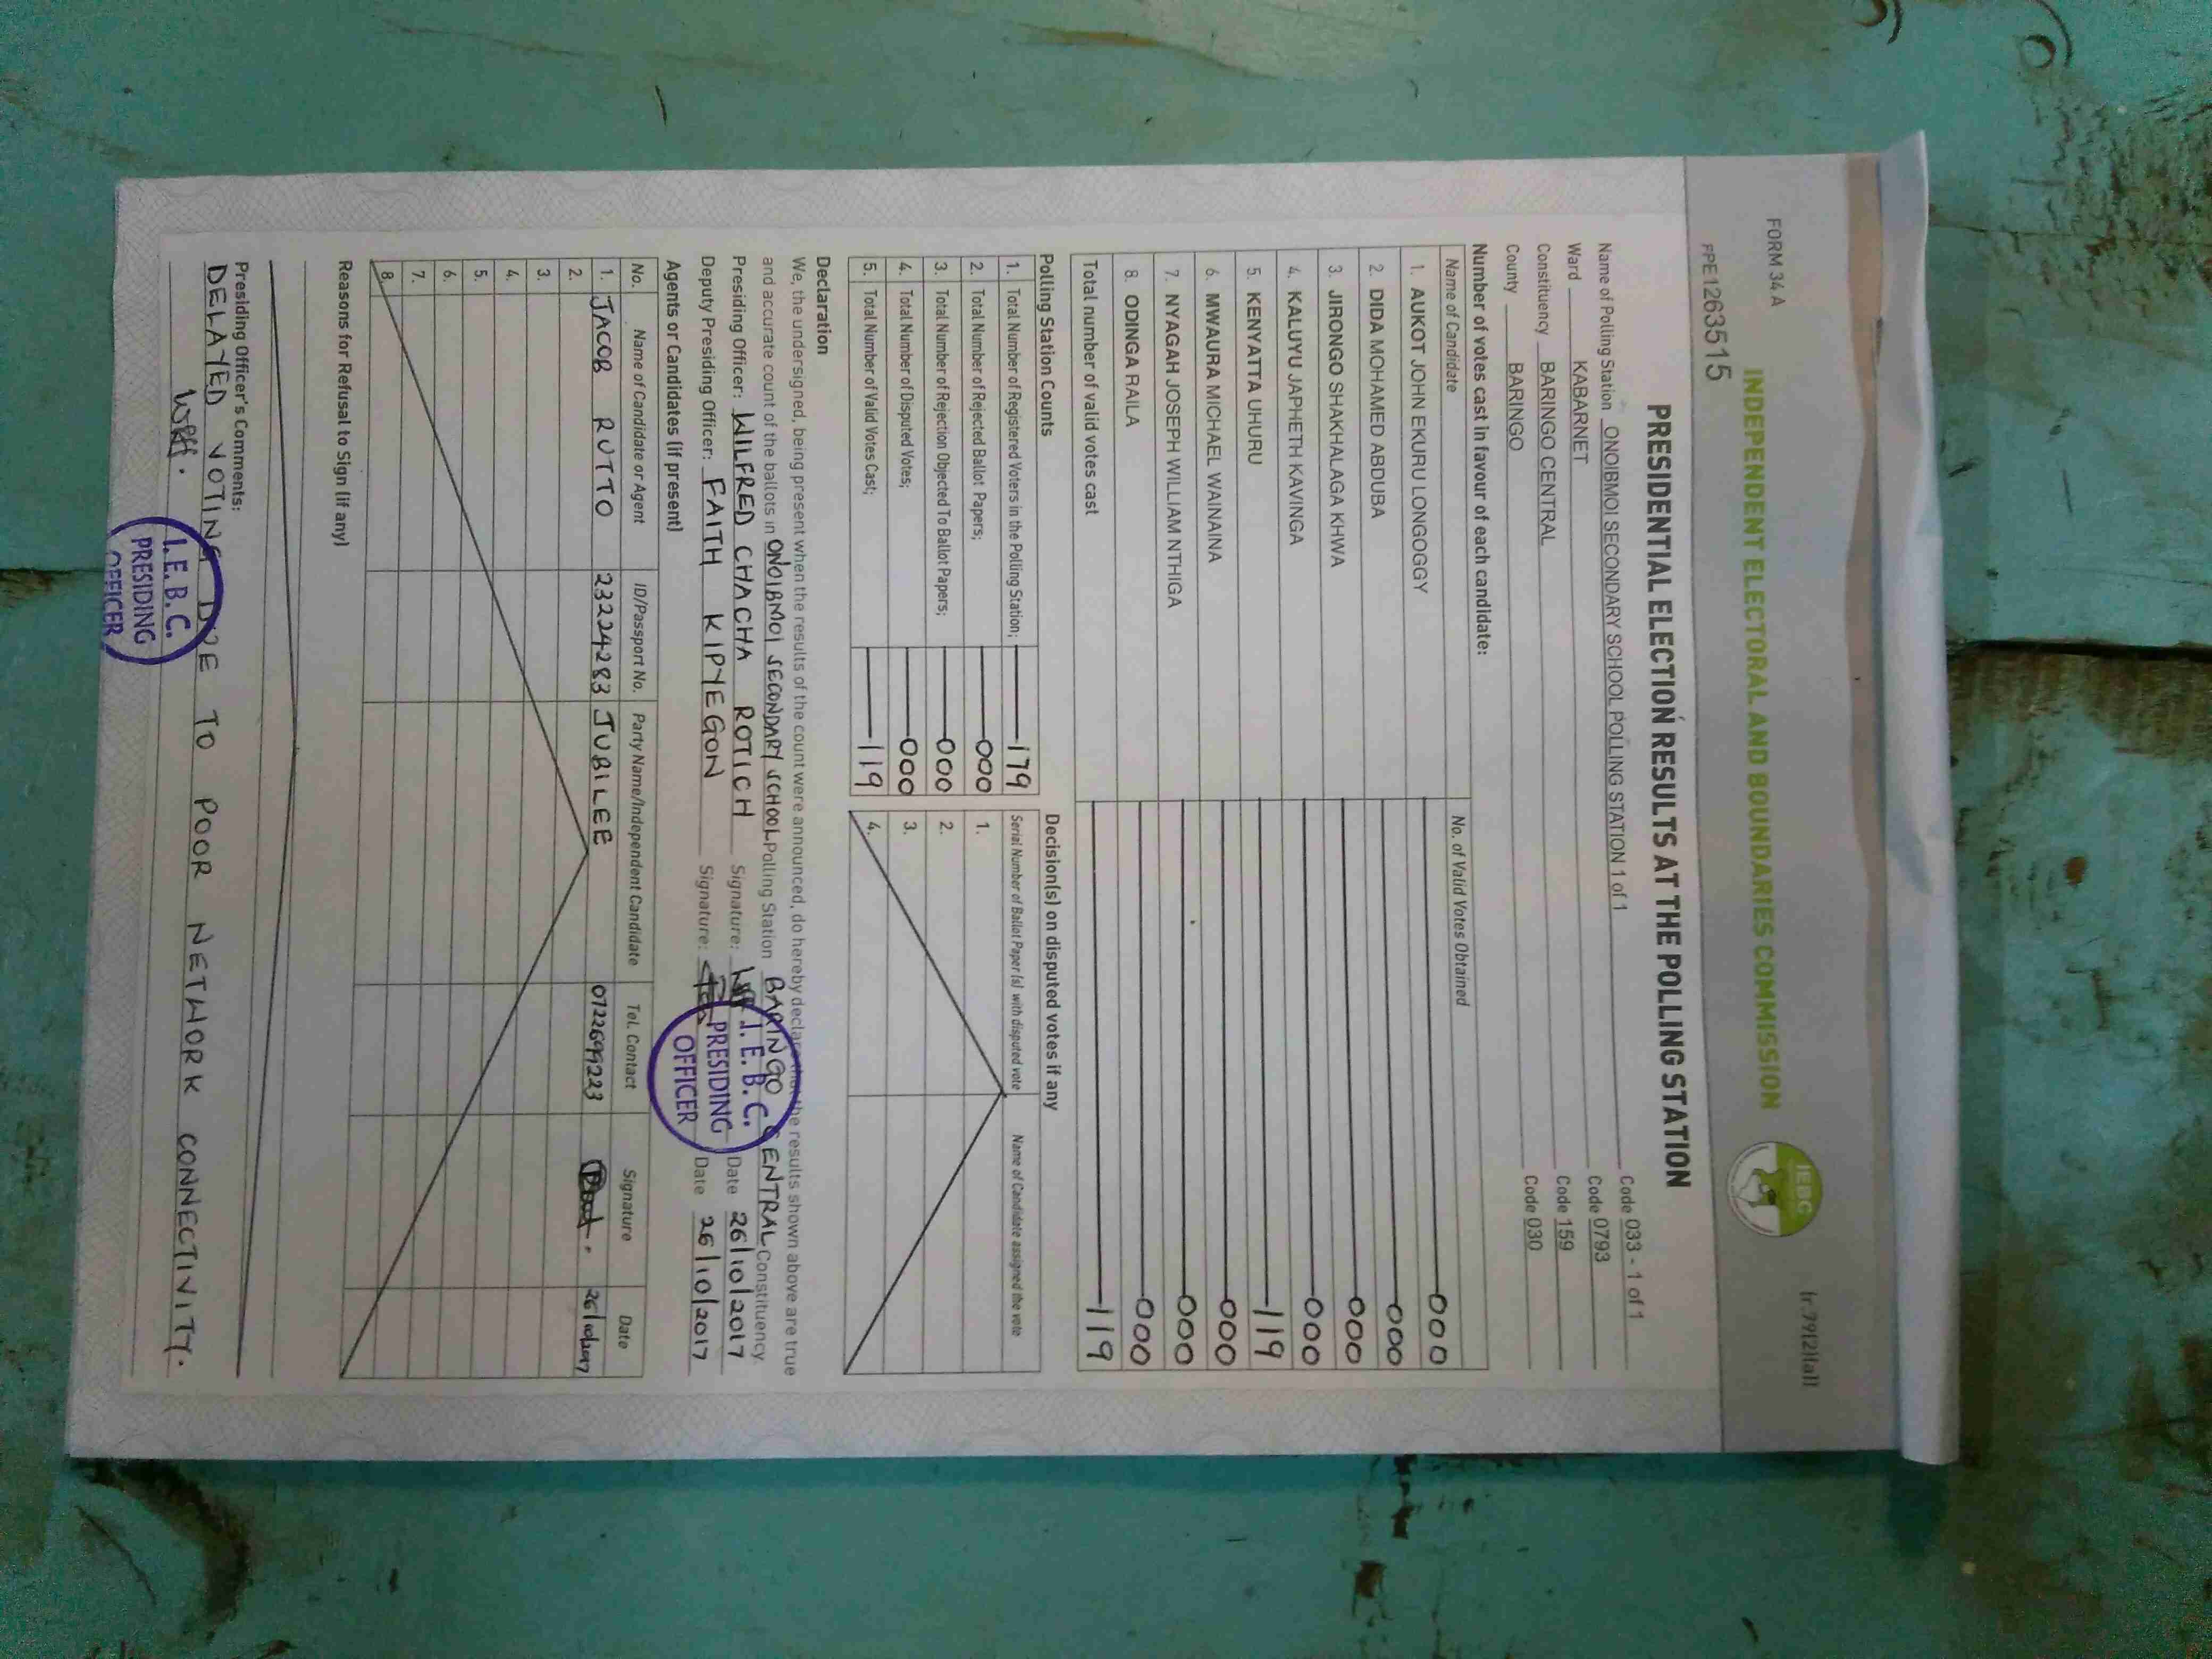 FORM 34 A
(r.79(2)(a))
INDEPENDENT ELECTORAL AND BOUNDARIES COMMISSION
IEBC
PPE1263515
PRESIDENTIAL ELECTION RESULTS AT THE POLLING STATION
Name of Polling Station ONOIBMOI SECONDARY SCHOOL POLLING STATION 1 of 1 Code 033 - 1 of 1
Ward KABARNET Code 0793
Constituency BARINGO CENTRAL Code 159
County BARINGO Code 030
Number of votes cast in favour of each candidate:
Name of Candidate No. of Valid Votes Obtained
1. AUKOT JOHN EKURU LONGOGGY 000
2. DIDA MOHAMED ABDUBA 000
3. JIRONGO SHAKHALAGA KHWA 000
4. KALUYU JAPHETH KAVINGA 000
5. KENYATTA UHURU 119
6. MWAURA MICHAEL WAINAINA 000
7. NYAGAH JOSEPH WILLIAM NTHIGA 000
8. ODINGA RAILA 000
Total number of valid votes cast 119
Polling Station Counts
1. Total Number of Registered Voters in the Polling Station; 179
2. Total Number of Rejected Ballot Papers; 000
3. Total Number of Rejection Objected To Ballot Papers; 000
4. Total Number of Disputed Votes; 000
5. Total Number of Valid Votes Cast; 119
Decision(s) on disputed votes if any
Serial Number of Ballot Paper (s) with disputed vote Name of Candidate assigned the vote
1.
2.
3.
4.
Declaration
We, the undersigned, being present when the results of the count were announced, do hereby declare that the results shown above are true
and accurate count of the ballots in ONOIBMOI SECONDARY SCHOOL Polling Station BARINGO CENTRAL Constituency
Presiding Officer: WILFRED CHACHA ROTICH Signature: Date 26/10/2017
Deputy Presiding Officer: FAITH KIPYEGON Signature: Date 26/10/2017
I.E.B.C.
PRESIDING
OFFICER
Agents or Candidates (if present)
No. Name of Candidate or Agent ID/Passport No. Party Name/Independent Candidate Tel. Contact Signature Date
1. JACOB RUTTO 23224283 JUBILEE 0722699223 26/10/2017
2.
3.
4.
5.
6.
7.
8.
Reasons for Refusal to Sign (if any)
Presiding Officer's Comments:
DELAYED VOTING DUE TO POOR NETWORK CONNECTIVITY.
I.E.B.C.
PRESIDING
OFFICER